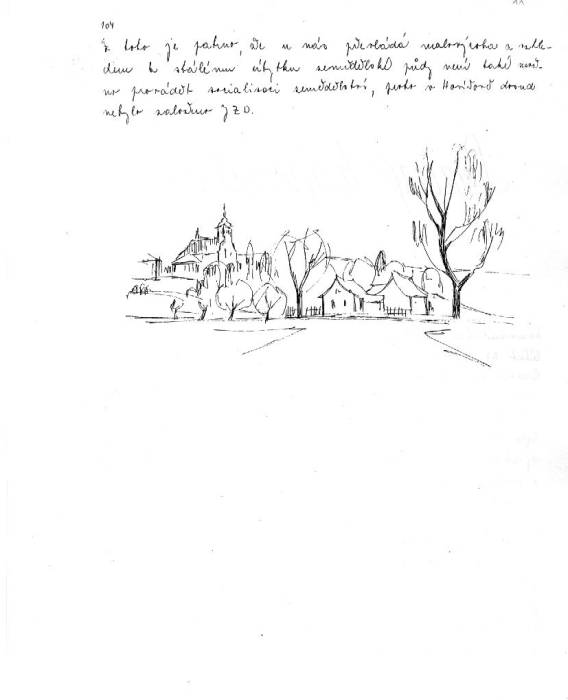 104
Z toho je patrno, že u nás převládá malovýroba a vzhle-
dem k stálému úbytku zemědělské půdy není také mož-
no provádět socialisaci zemědělství, proto v dosud
nebylo založeno JZD.